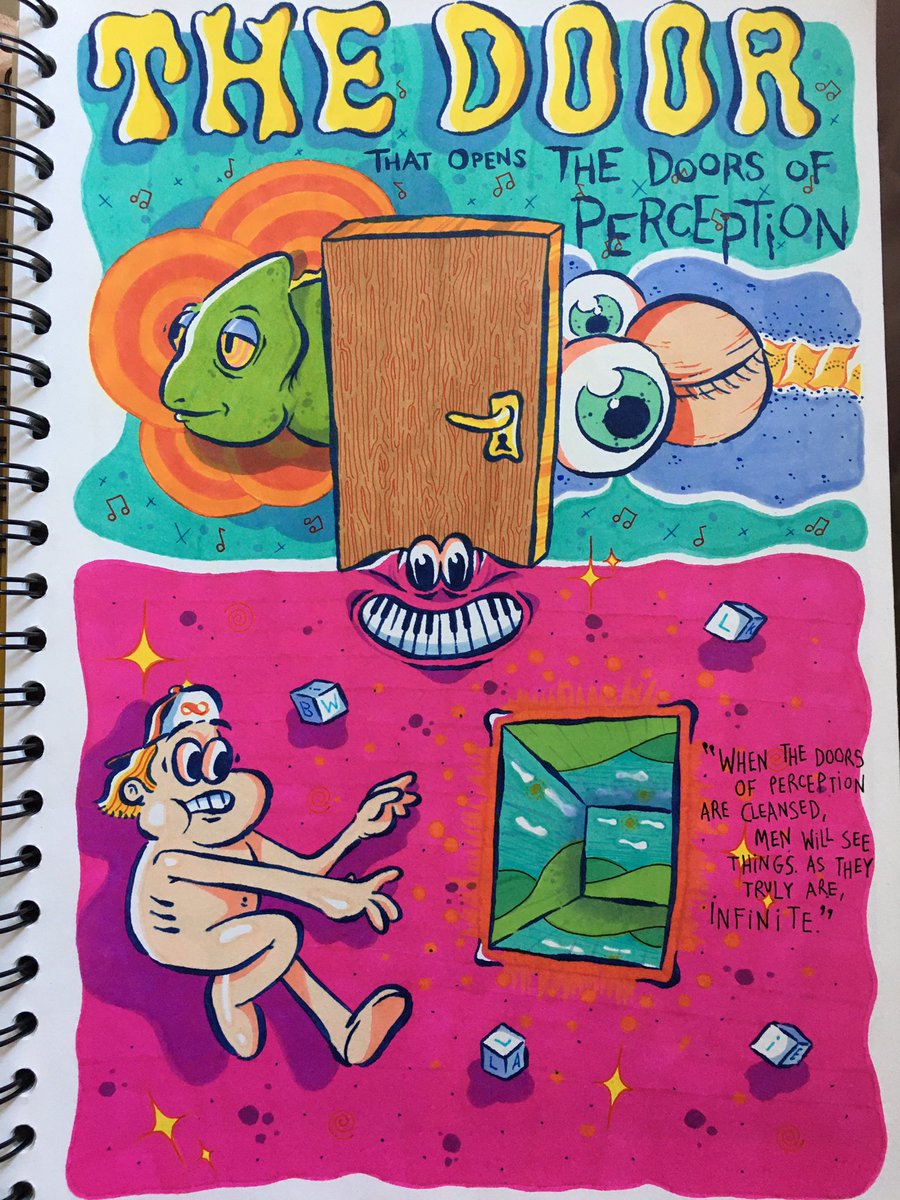 THE DOOR
THAT OPENS THE DOORS OF
PERCEPTION
B W
L
L A
E
"WHEN THE DOORS
OF PERCEPTION
ARE CLEANSED,
MEN WILL SEE
THINGS. AS THEY
TRULY ARE,
INFINITE."